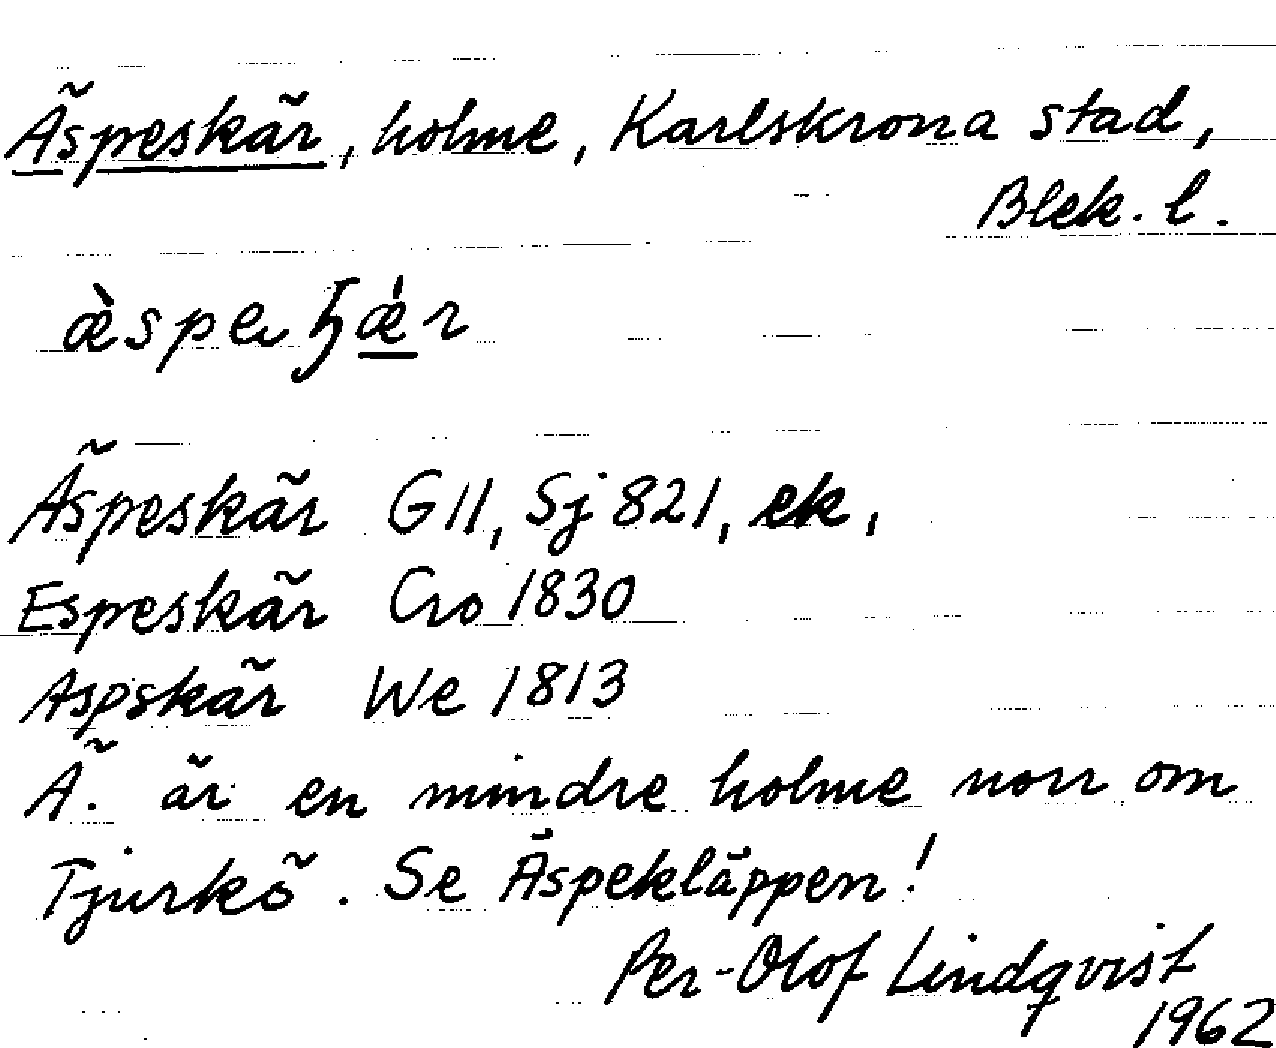 Äspeskär, holme, Karlskrona stad,
Blek. l.
Äspeskär G11, Sj 821, ek,
Espeskär Cro 1830
Aspskär We 1813
Ä. är en mindre holme norr om
Tjurkö. Se Äspekläppen!
Per-Olof Lindqvist
1962